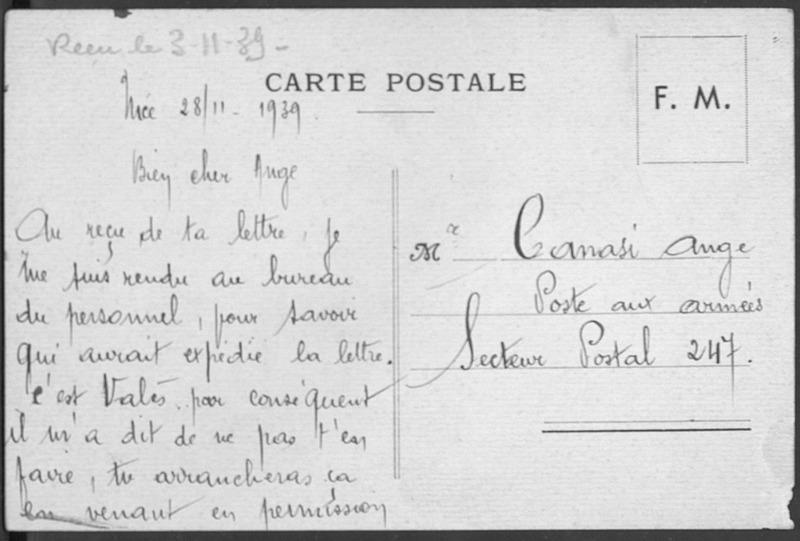 Reçu le 3-11-39-
CARTE POSTALE
F. M.
Nice 28/11-1939.
Bien cher Ange
Au reçu de ta lettre, je
me suis rendu au bureau
du personnel, pour savoir
qui aurait expédié la lettre.
c'est Valès. par conséquent
il m'a dit de ne pas t'en
faire, tu arrancheras ça
en venant en permission
Mr Canasi Ange
Poste aux armées
Secteur Postal 247.